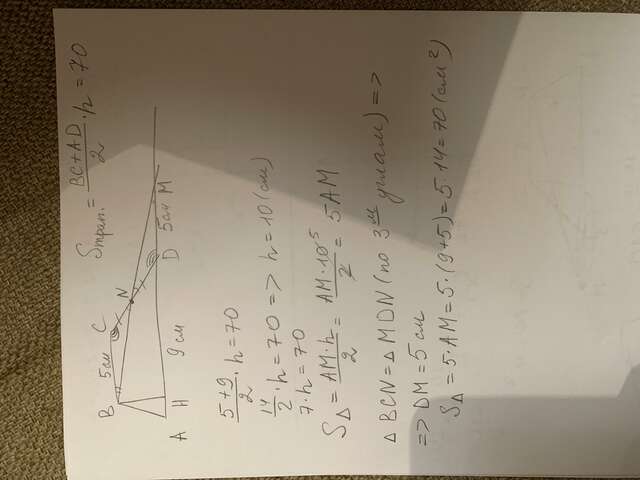 Sтрап. = BC+AD/2 · h = 70
B 5см C
N
A H 9 см D 5см M
5+9/2 · h = 70
14/2 · h = 70 => h = 10 (см)
7 · h = 70
S∆ = AM · h/2 = AM · 10 5/2 = 5 AM
∆ BCN = ∆ MDN (по 3м углам) =>
=> DM = 5 см
S∆ = 5 · AM = 5 · (9+5) = 5 · 14 = 70 (см²)